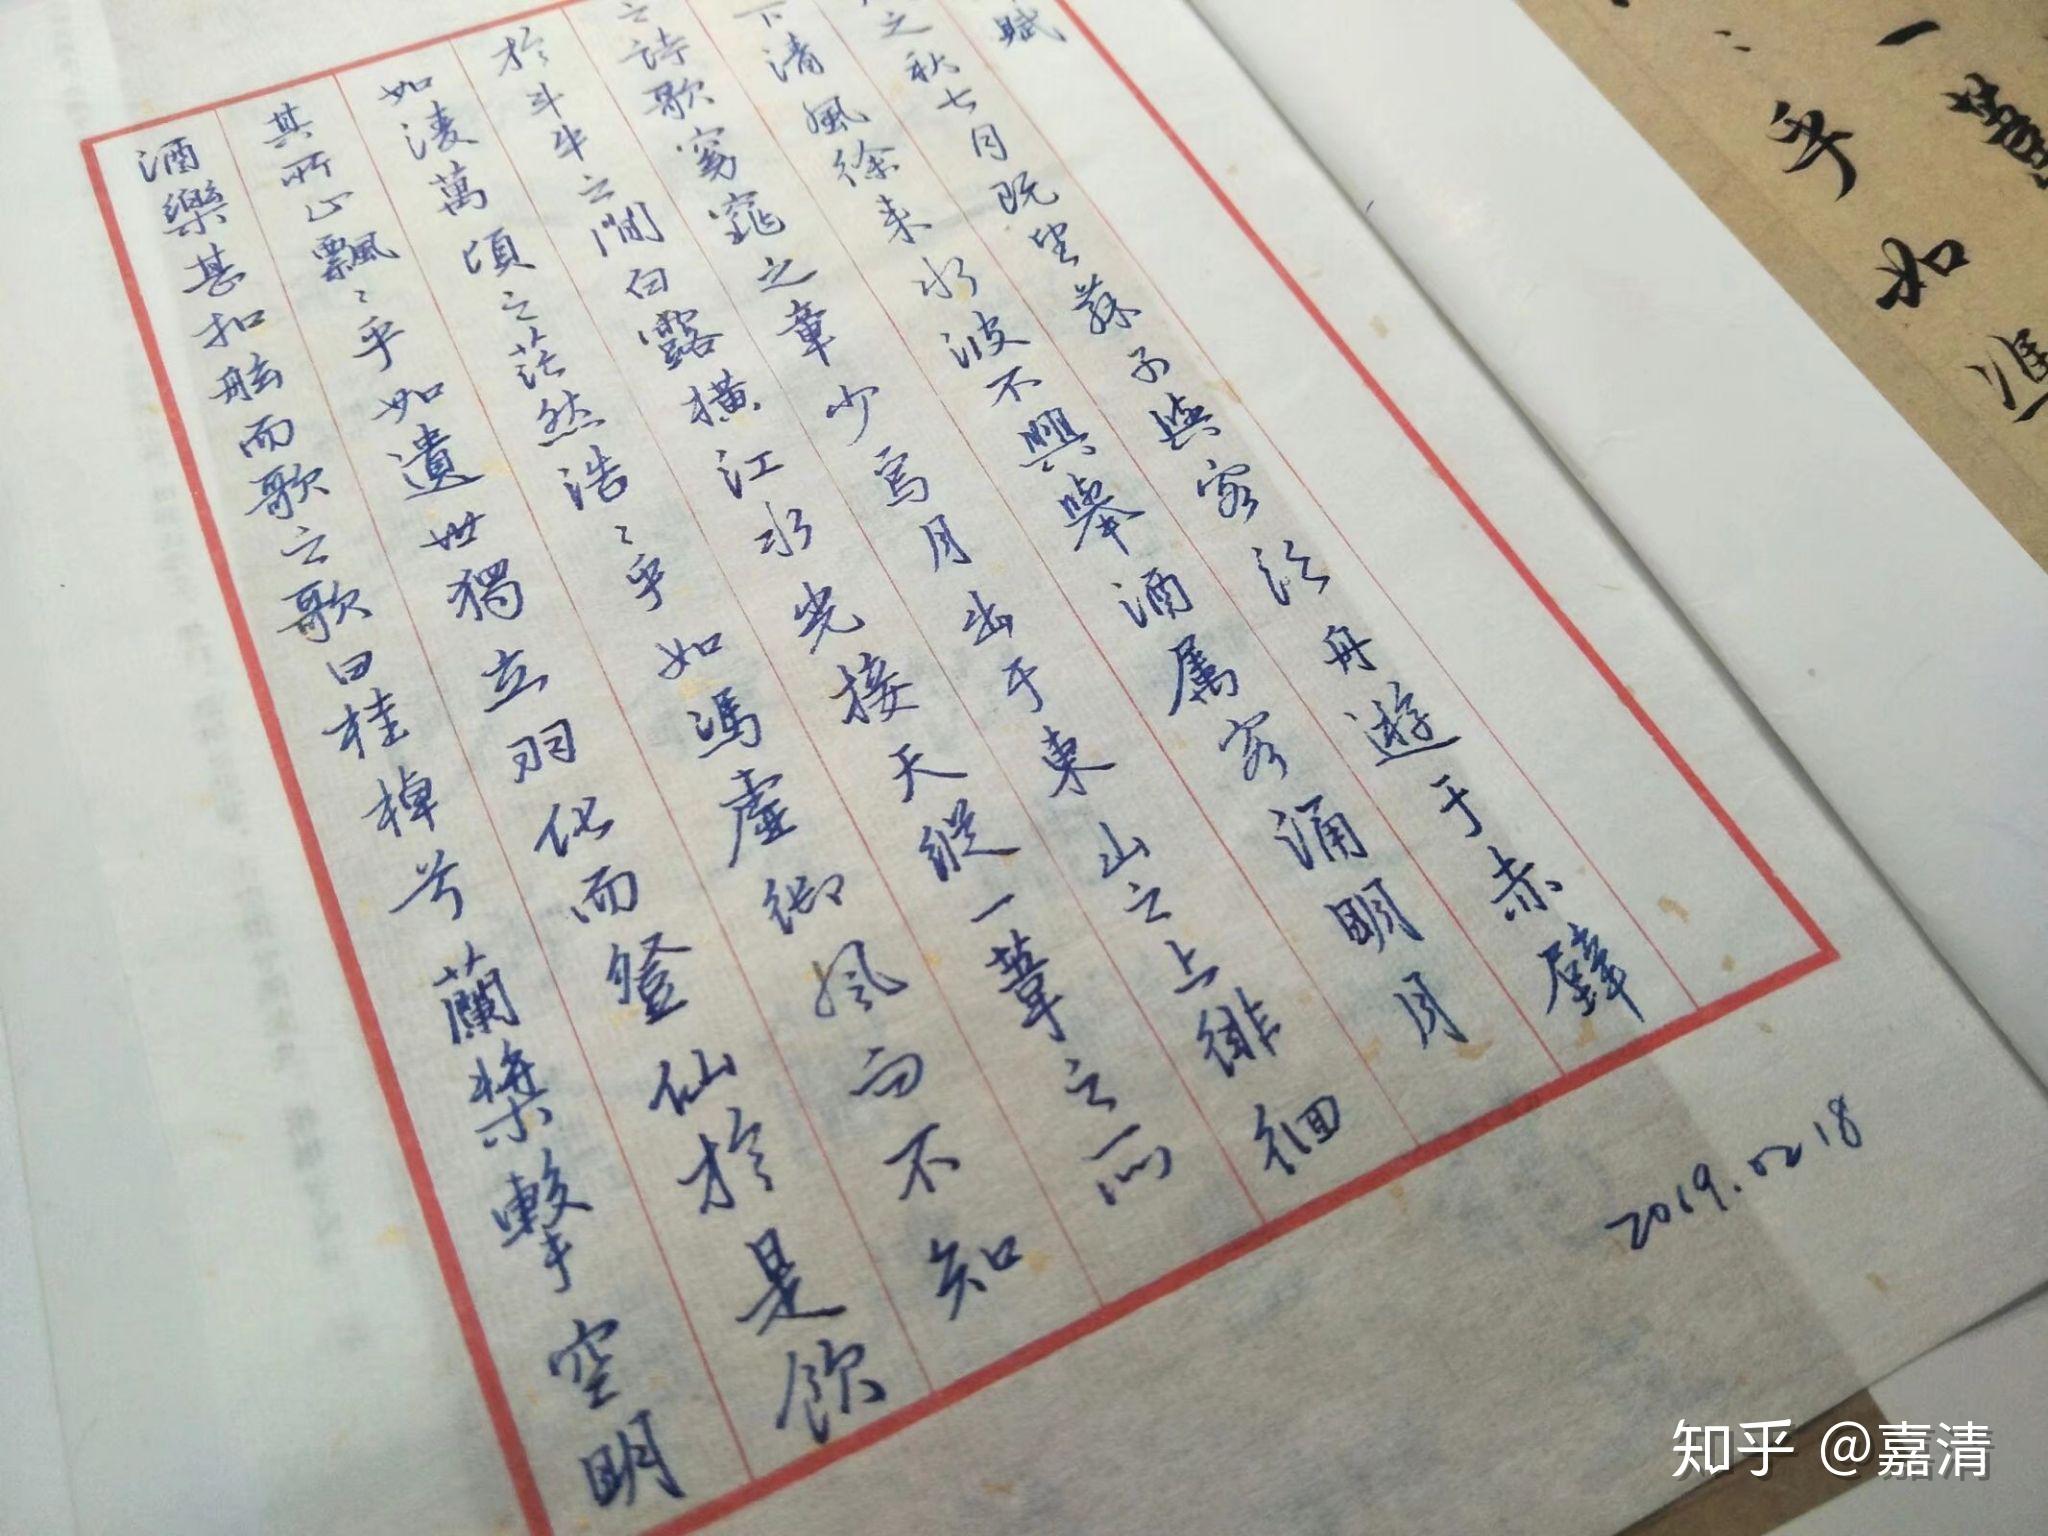 賦
之秋七月既望蘇子與客泛舟遊于赤壁
下清風徐来水波不興舉酒属客誦明月
之詩歌窈窕之章少焉月出于東山之上徘徊
於斗牛之間白露橫江水光接天縱一葦之所
如淩萬頃之茫然浩〻乎如馮虛御風而不知
其所止飄〻乎如遺世獨立羽化而登仙於是飲
酒樂甚扣舷而歌之歌曰桂棹兮蘭槳擊空明
2019.02.18
一葦
乎如馮
知乎 @嘉清